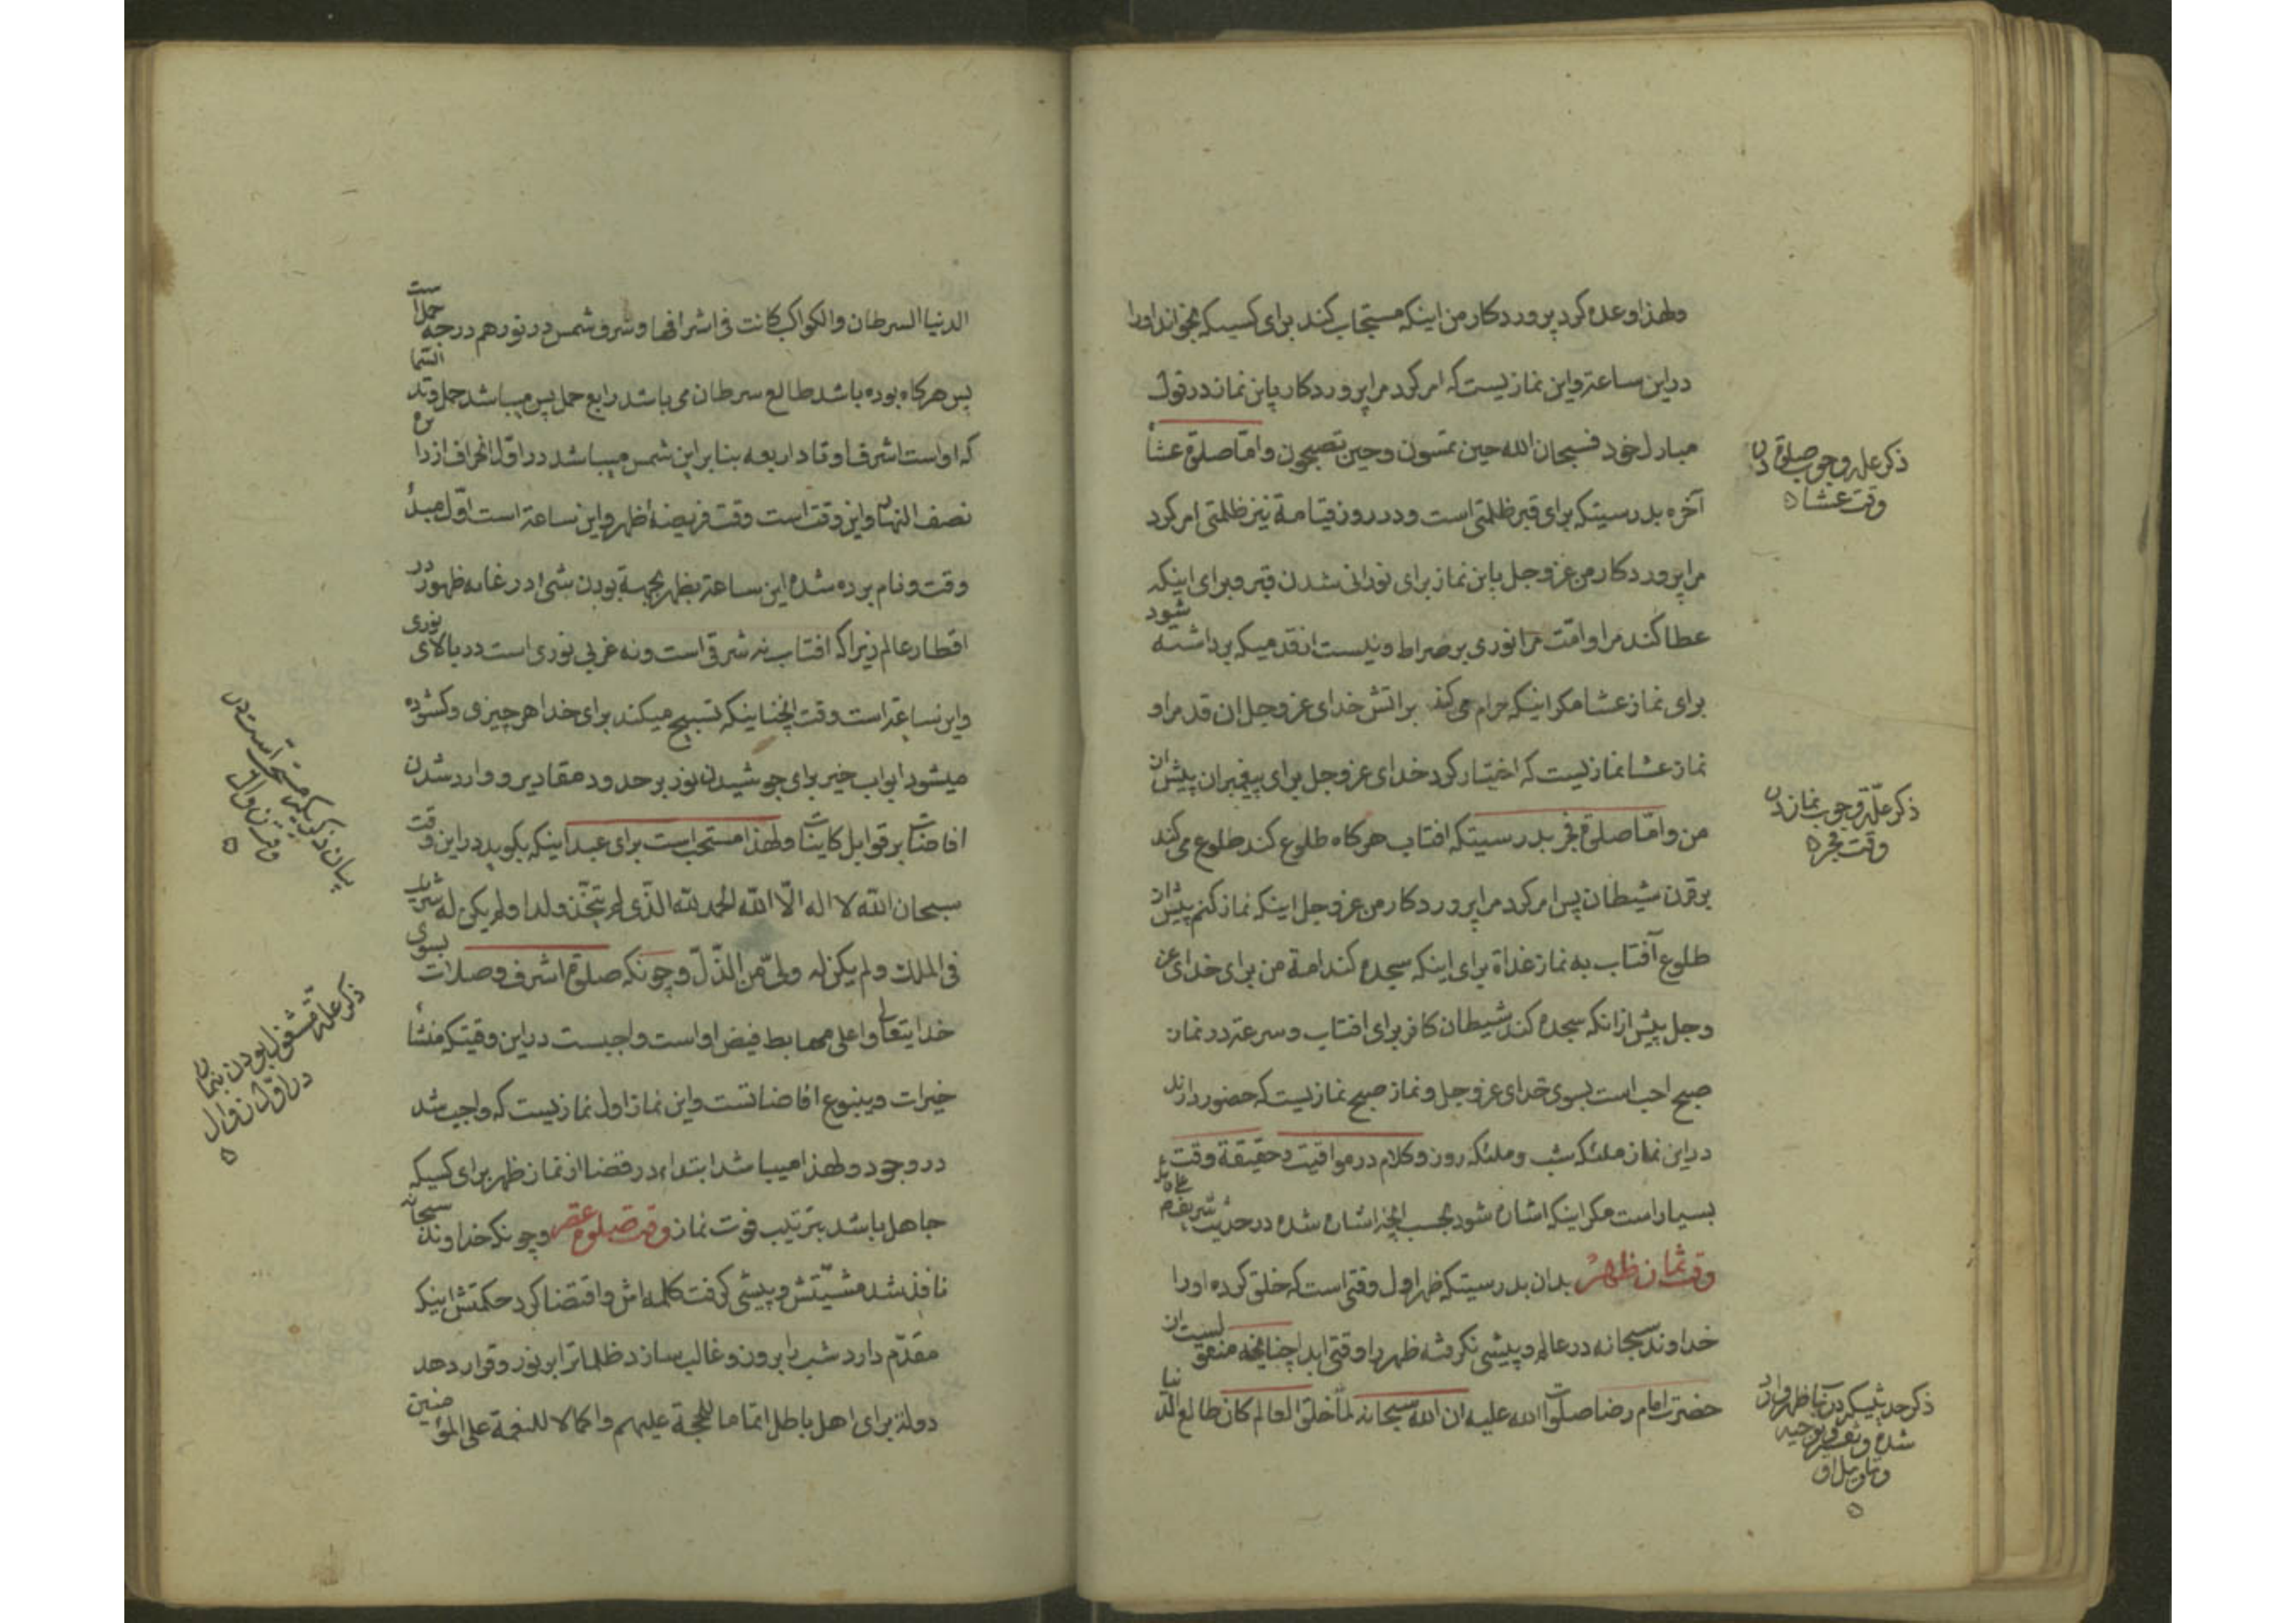 ولهذا وعده کرد پروردکار من اینکه مستجاب کند برای کسیکه بخواند او را
در این ساعة و این نمازیست که امر کرد مرا پروردکار باین نماز در قول
مبارك خود فسبحان الله حین تمسون و حین تصبحون و امّا صلوة عشاء
آخره بدرستیکه برای قبر ظلمتی است و در روز قیامة نیز ظلمتی امر کرد
مرا پروردکار من عزوجل باین نماز برای نورانی شدن قبر و برای اینکه
عطا کند مرا و امّت مرا نوری بر صراط و نیست ان قدمیکه برداشته شود
برای نماز عشا مکر اینکه حرام می کند بر اتش خدای عزوجل ان قدم را و
نماز عشا نمازیست که اختیار کرد خدای عزوجل برای پیغمبران پیش از
من و امّا صلوة فجر بدرستیکه افتاب هرکاه طلوع کند طلوع می کند
بر قرن شیطان پس امر کرد مرا پروردکار من عزوجل اینکه نماز کنم پیش از
طلوع آفتاب به نماز غداة برای اینکه سجده کند امة من برای خدای عز
وجل پیش از انکه سجده کند شیطان کافر برای افتاب و سرعة در نماز
صبح احب است بسوی خدای عزوجل و نماز صبح نمازیست که حضور دارند
در این نماز ملئکه شب و ملئکه روز و کلام در مواقیت و حقیقة وقت
بسیار است مکر اینکه اشاره شود بحسب انچه اشاره شده در حدیث شریف
وقت نماز ظهر بدان بدرستیکه ظهر اول وقتی است که خلق کرده او را
خداوند سبحانه در عالم و پیشی نکرفته ظهر را وقتی ابدا چنانچه منقولست از
حضرت امام رضا صلوات الله علیه ان الله سبحانه لمّا خلق العالم کان طالع الدنیا
ذکر علة وجوب صلوة در
وقت عشاء
ذکر علّة وجوب نماز در
وقت فجر
شده و تفسیر و توجیه
و تاویل او
الدنیا السرطان والکواکب کانت فی اشرافها و شرف شمس در نوزدهم درجه حمل است
پس هرکاه بوده باشد طالع سرطان می باشد رابع حمل پس میباشد حمل وتد السّماء
که او است اشرف اوتاد اربعه بنابراین شمس میباشد در اوّل انحراف از دائره
نصف النهار و این وقت است وقت فریضهٔ ظهر و این ساعة است اوّل مبدأ
وقت و نام برده شده این ساعة بظهر بجهة بودن شیء در غایه ظهور در
اقطار عالم زیراکه افتاب نه شرقی است و نه غربی نوری است در بالای نوری
و این ساعة است وقت انچنانیکه تسبیح میکند برای خدا هر چیزی و کشوده
میشود ابواب خیر برای جوشیدن نور بر حدود مقادیر و وارد شدن
افاضات بر قوابل کاینات ولهذا مستحب است برای عبد اینکه بکوید در این وقت
سبحان الله لا اله الّا الله الحمد لله الذی لم یتّخذ ولدا ولم یکن له شریك
فی الملك ولم یکن له ولیّ من الذّلّ و چونکه صلوة اشرف وصلات بسوی
خدایتعالی و اعلی مهابط فیض او است واجبست در این وقتیکه منشأ
خیرات و ینبوع افاضاتست و این نماز اول نمازیست که واجب شد
در وجود ولهذا میباشد ابتداء در قضا از نماز ظهر برای کسیکه
جاهل باشد بترتیب فوت نماز وقت صلوة عصر و چونکه خداوند سبحانه
نافذ شد مشیّتش و پیشی کرفت کلمه اش و اقتضا کرد حکمتش اینکه
مقدّم دارد شب را بر روز و غالب سازد ظلمات را بر نور و قرار دهد
دولة برای اهل باطل اتماما للحجة علیهم و اکمالا للنعمة علی المؤمنین
بیان ذکریکه مستحبّ است در
وقت زوال
ذکر علّة مشغول بودن بنماز
در اوّل زوال